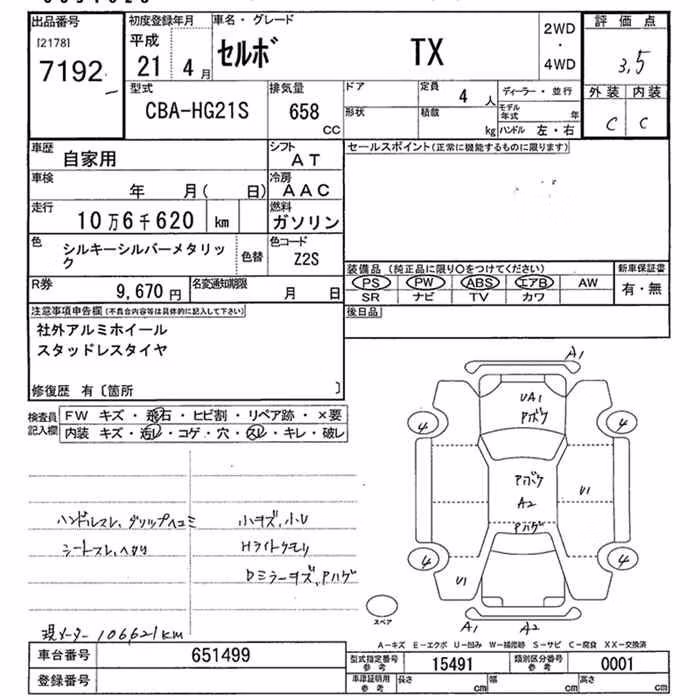 出品番号 初度登録年月 車名・グレード 評価点
[2178] 平成 2WD
7192 21 4月 セルボ TX ・ 3.5
4WD
型式 排気量 ドア 定員 4 人 ディーラー・並行 外装 内装
CBA-HG21S 658 cc 形状 積載 kg モデル年式 年 C C
ハンドル 左・右
車歴 自家用 シフト AT セールスポイント(正常に機能するものに限ります)
車検 年 月( 日) 冷房 AAC
走行 10万6千620 km 燃料 ガソリン
色 シルキーシルバーメタリック 色替 色コード Z2S
装備品 (純正品に限り○をつけてください) 新車保証書
R券 9,670円 名変通知期限 月 日 PS PW ABS エアB AW 有・無
SR ナビ TV カワ
注意事項申告欄(不具合内容等は具体的に記入して下さい) 後日品
社外アルミホイール
スタッドレスタイヤ
修復歴 有〔箇所 〕
検査員記入欄 FW キズ・飛石・ヒビ割・リペア跡・×要
内装 キズ・汚レ・コゲ・穴・スレ・キレ・破レ
A1
UA1
アバタ
4 4
アバタ
A2 U1
アハゲ
4 4
U1
スペア
A1 A2
ハンドルスレ、グリップヘコミ 小キズ、小U
シートスレ、ヘタリ Hライトクモリ
Dミラーキズ、アハゲ
現メーター 106621km
A－キズ E－エクボ U－凹み W－補修跡 S－サビ C－腐食 XX－交換済
車台番号 651499 型式指定番号 参考 15491 類別区分番号 参考 0001
登録番号 車庫証明用 参考 長さ cm 幅 cm 高さ cm